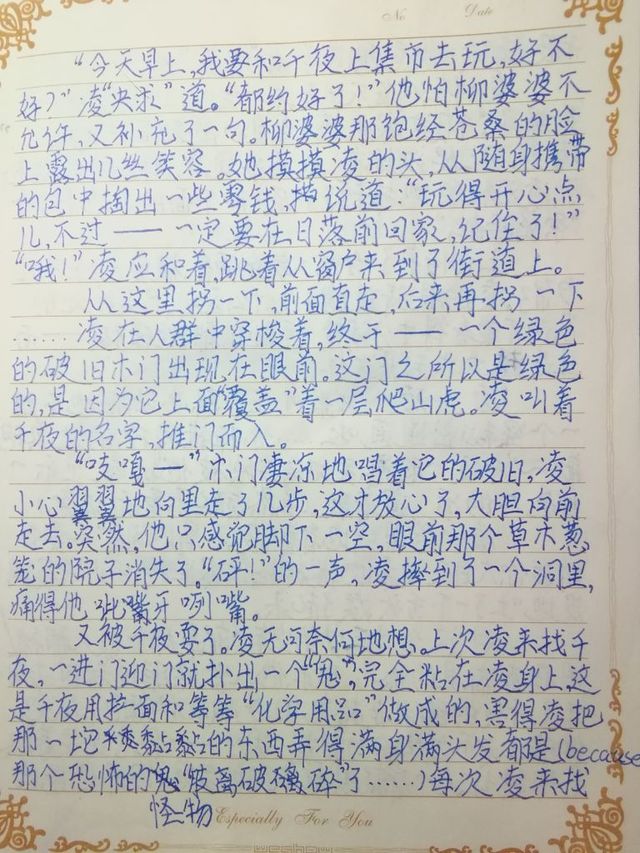 No Date
“今天早上,我要和千夜上集市去玩,好不
好?”凌“央求”道。“都约好了!”他怕柳婆婆不
允许,又补充了一句。柳婆婆那饱经苍桑的脸
上露出几丝笑容。她摸摸凌的头,从随身携带
的包中掏出一些零钱,说道:“玩得开心点
儿,不过——一定要在日落前回家,记住了!”
“哦!”凌应和着,跳着从窗户来到了街道上。
从这里拐一下,前面直走,后来再拐一下
……凌在人群中穿梭着,终于——一个绿色
的破旧木门出现在眼前。这门之所以是绿色
的,是因为它上面“覆盖”着一层爬山虎。凌叫着
千夜的名字,推门而入。
“吱嘎—”木门凄凉地唱着它的破旧,凌
小心翼翼地向里走了几步,这才放心了,大胆向前
走去。突然,他只感觉脚下一空,眼前那个草木葱
笼的院子消失了。“砰!”的一声,凌摔到了一个洞里,
痛得他呲嘴牙咧嘴。
又被千夜耍了。凌无可奈何地想。上次凌来找千
夜,一进门迎门就扑出一个“鬼”,完全粘在凌身上,这
是千夜用拉面和等等“化学用品”做成的,害得凌把
那一坨黏黏的东西弄得满身满头发都是(because
那个恐怖的鬼“被离破碎”了……)每次凌来找
怪物 Especially For You